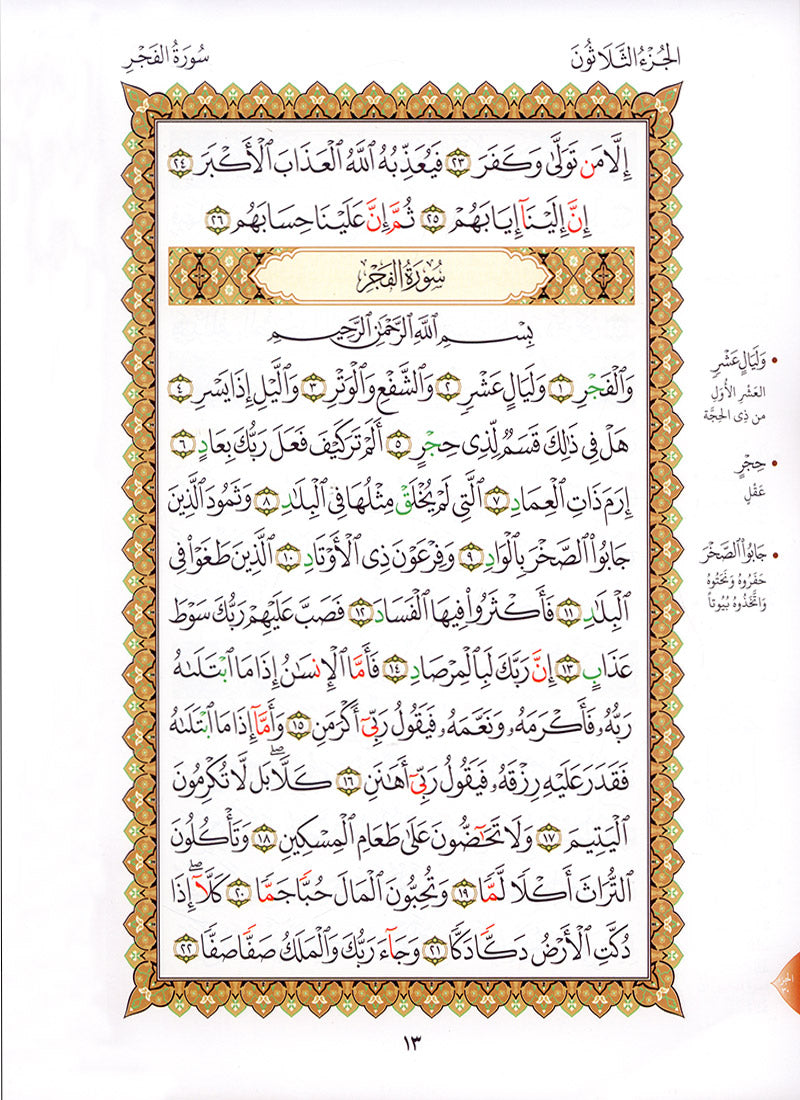 الجُزْءُ الثَّلَاثُونَ
سُورَةُ الفَجْرِ
إِلَّا مَن تَوَلَّىٰ وَكَفَرَ ٢٣ فَيُعَذِّبُهُ ٱللَّهُ ٱلْعَذَابَ ٱلْأَكْبَرَ ٢٤
إِنَّ إِلَيْنَآ إِيَابَهُمْ ٢٥ ثُمَّ إِنَّ عَلَيْنَا حِسَابَهُم ٢٦
سُورَةُ الفَجْرِ
بِسْمِ ٱللَّهِ ٱلرَّحْمَٰنِ ٱلرَّحِيمِ
وَٱلْفَجْرِ ١ وَلَيَالٍ عَشْرٍ ٢ وَٱلشَّفْعِ وَٱلْوَتْرِ ٣ وَٱلَّيْلِ إِذَا يَسْرِ ٤
هَلْ فِى ذَٰلِكَ قَسَمٌ لِّذِى حِجْرٍ ٥ أَلَمْ تَرَ كَيْفَ فَعَلَ رَبُّكَ بِعَادٍ ٦
إِرَمَ ذَاتِ ٱلْعِمَادِ ٧ ٱلَّتِى لَمْ يُخْلَقْ مِثْلُهَا فِى ٱلْبِلَٰدِ ٨ وَثَمُودَ ٱلَّذِينَ
جَابُوا۟ ٱلصَّخْرَ بِٱلْوَادِ ٩ وَفِرْعَوْنَ ذِى ٱلْأَوْتَادِ ١٠ ٱلَّذِينَ طَغَوْا۟ فِى
ٱلْبِلَٰدِ ١١ فَأَكْثَرُوا۟ فِيهَا ٱلْفَسَادَ ١٢ فَصَبَّ عَلَيْهِمْ رَبُّكَ سَوْطَ
عَذَابٍ ١٣ إِنَّ رَبَّكَ لَبِٱلْمِرْصَادِ ١٤ فَأَمَّا ٱلْإِنسَٰنُ إِذَا مَا ٱبْتَلَىٰهُ
رَبُّهُۥ فَأَكْرَمَهُۥ وَنَعَّمَهُۥ فَيَقُولُ رَبِّىٓ أَكْرَمَنِ ١٥ وَأَمَّآ إِذَا مَا ٱبْتَلَىٰهُ
فَقَدَرَ عَلَيْهِ رِزْقَهُۥ فَيَقُولُ رَبِّىٓ أَهَٰنَنِ ١٦ كَلَّا ۖ بَل لَّا تُكْرِمُونَ
ٱلْيَتِيمَ ١٧ وَلَا تَحَٰٓضُّونَ عَلَىٰ طَعَامِ ٱلْمِسْكِينِ ١٨ وَتَأْكُلُونَ
ٱلتُّرَاثَ أَكْلًا لَّمًّا ١٩ وَتُحِبُّونَ ٱلْمَالَ حُبًّا جَمًّا ٢٠ كَلَّآ ۖ إِذَا
دُكَّتِ ٱلْأَرْضُ دَكًّا دَكًّا ٢١ وَجَآءَ رَبُّكَ وَٱلْمَلَكُ صَفًّا صَفًّا ٢٢
• وَلَيَالٍ عَشْرٍ
العَشْرِ الأُوَلِ
من ذِى الحِجَّة
• حِجْرٍ
عَقْلٍ
• جَابُوا۟ ٱلصَّخْرَ
حَفَرُوهُ وَنَحَتُوهُ
وَاتَّخَذُوهُ بُيُوتاً
١٣